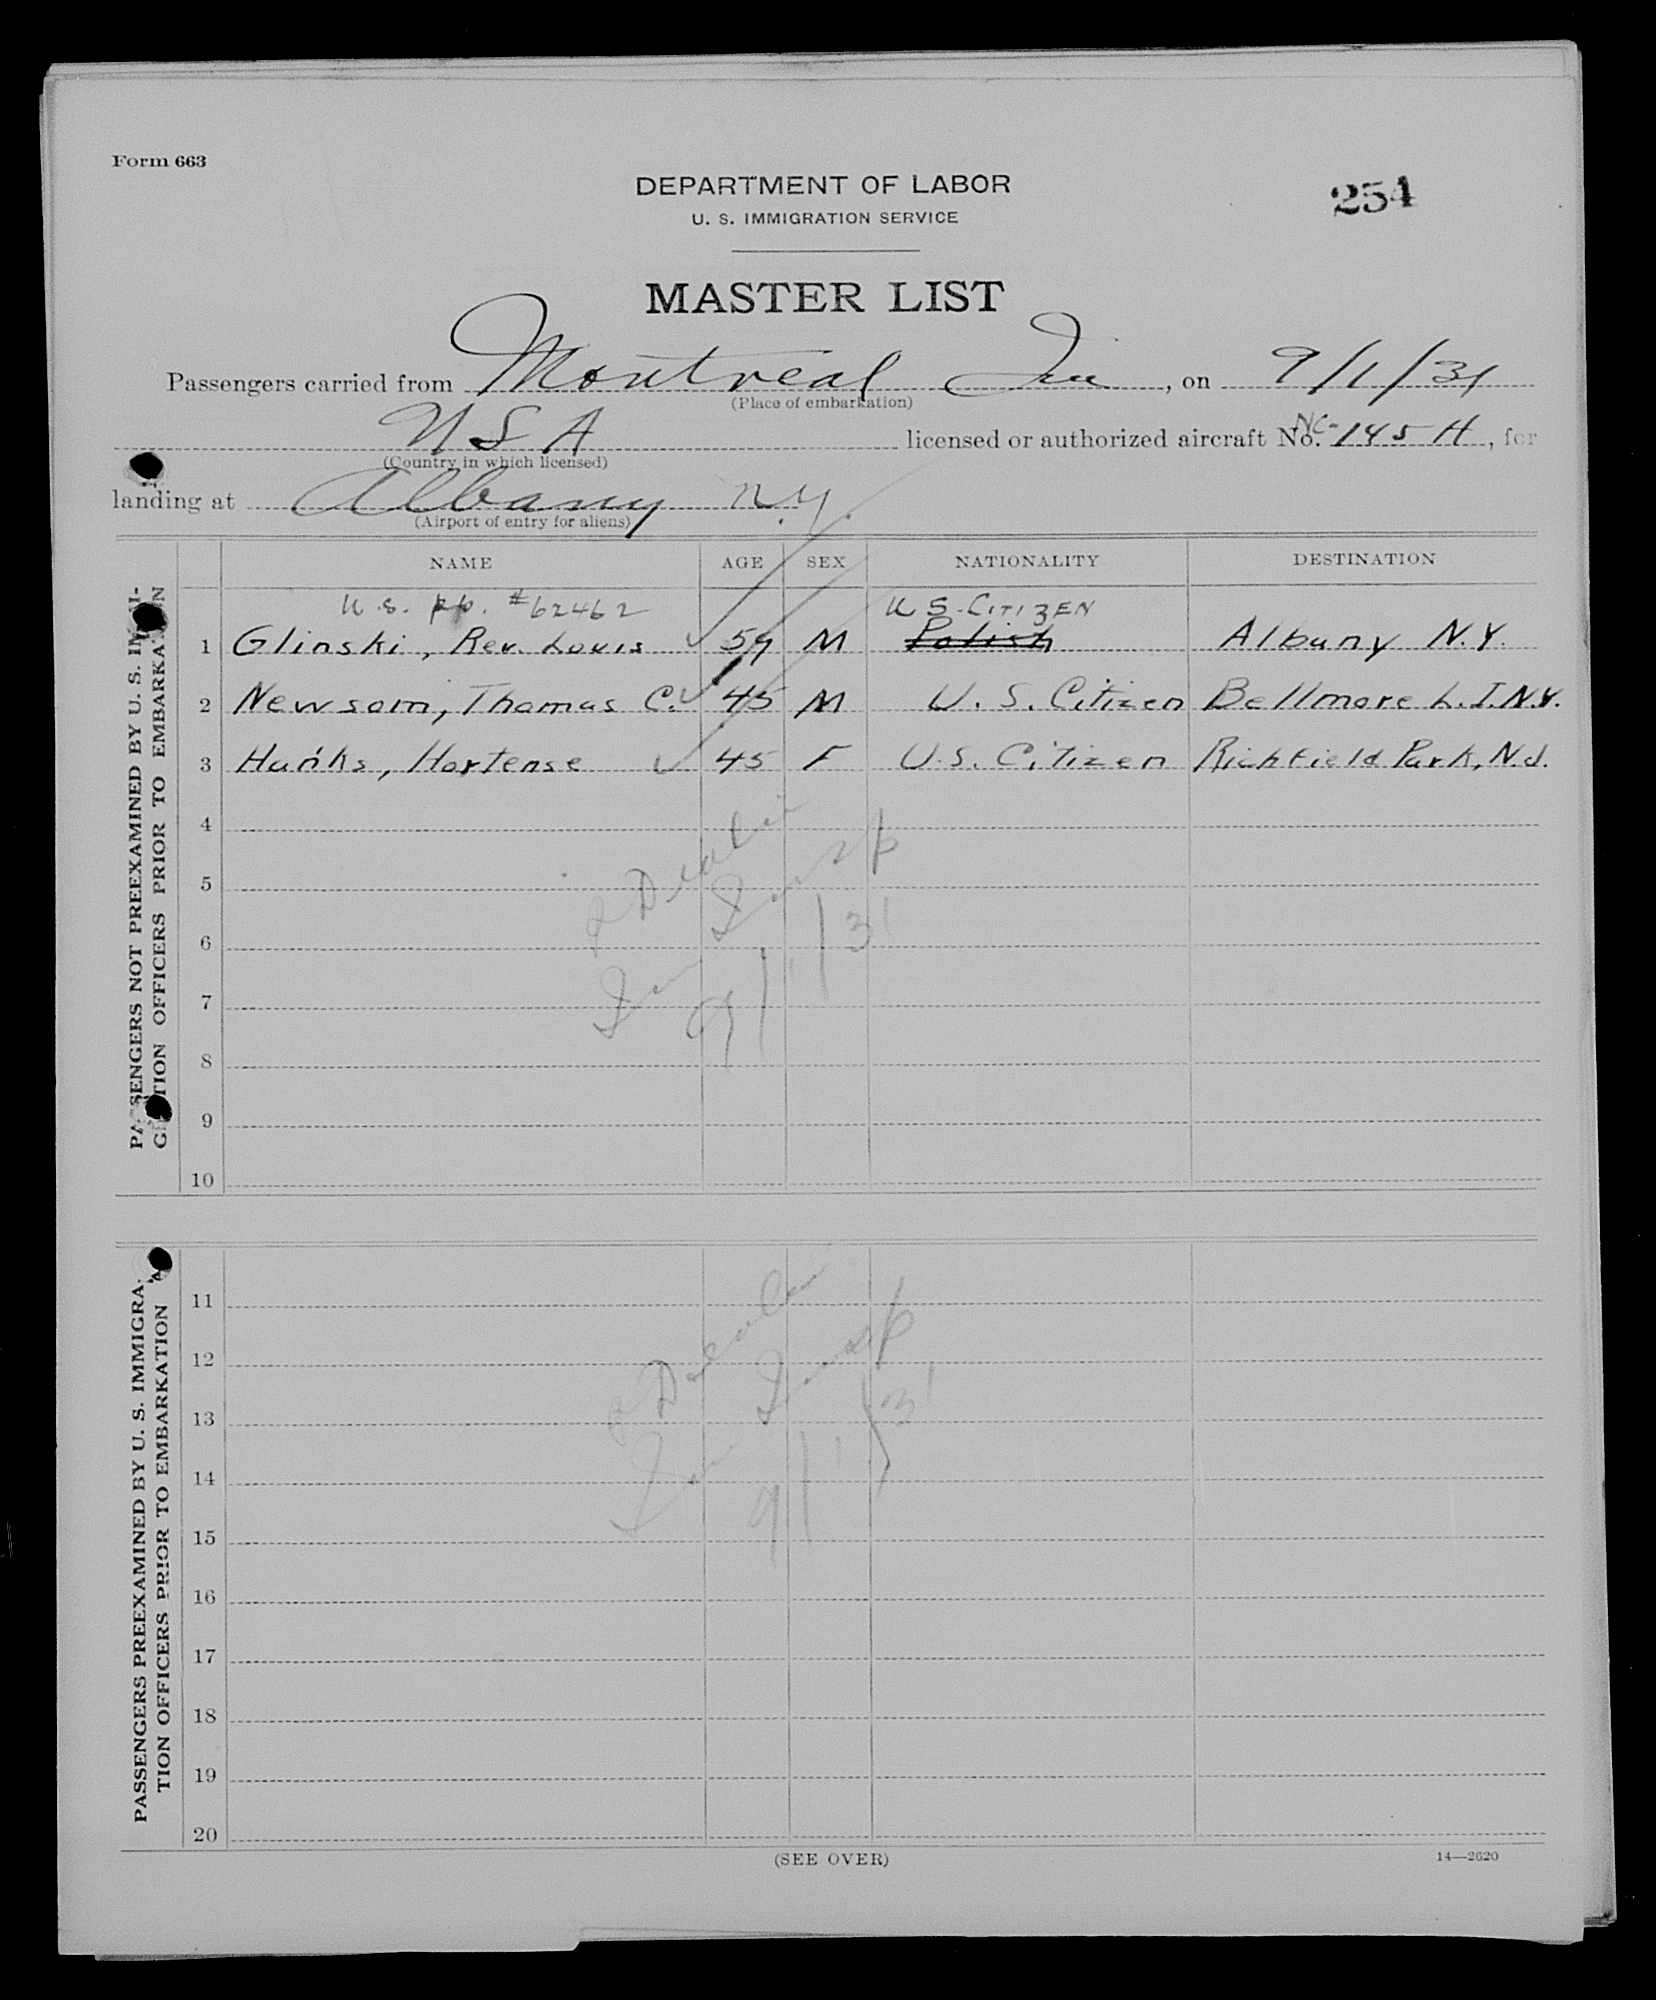 Form 663
DEPARTMENT OF LABOR
254
U. S. IMMIGRATION SERVICE
MASTER LIST
Passengers carried from Montreal , on 9/1/31
(Place of embarkation)
U S A licensed or authorized aircraft No. NC-145 H, for
(Country in which licensed)
landing at Albany N.Y.
(Airport of entry for aliens)
NAME AGE SEX NATIONALITY DESTINATION
U.S. pp. #62462 U S. CITIZEN
1 Glinski, Rev. Louis 59 M Polish Albany N.Y.
2 Newsom, Thomas C. 45 M U. S. Citizen Bellmore L.I.N.Y.
3 Hunks, Hortense 45 F U.S. Citizen Richfield Park, N.J.
4
5
6
7
8
9
10
PASSENGERS NOT PREEXAMINED BY U. S. IMMI-
GRATION OFFICERS PRIOR TO EMBARKATION
9/1/31
11
12
13
14
15
16
17
18
19
20
PASSENGERS PREEXAMINED BY U. S. IMMIGRA-
TION OFFICERS PRIOR TO EMBARKATION
9/1/31
(SEE OVER)
14—2620